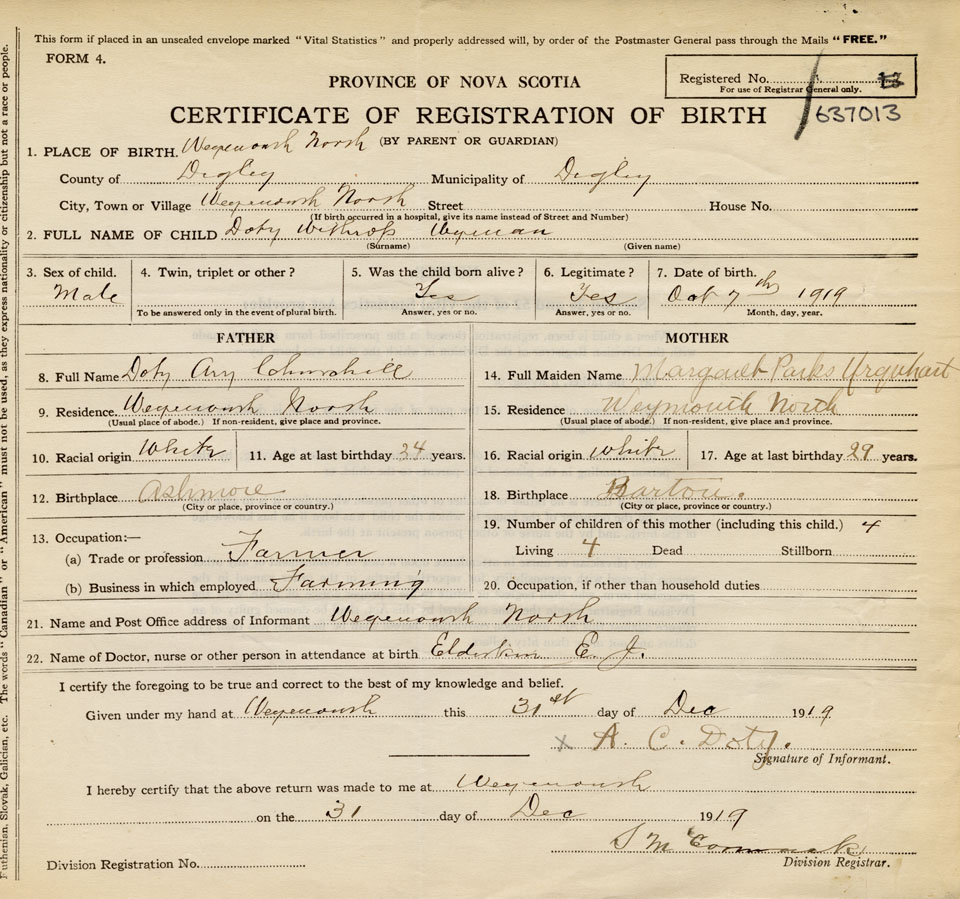 This form if placed in an unsealed envelope marked "Vital Statistics" and properly addressed will, by order of the Postmaster General pass through the Mails "FREE."
FORM 4.
Registered No. 13
For use of Registrar General only.
637013
PROVINCE OF NOVA SCOTIA
CERTIFICATE OF REGISTRATION OF BIRTH
(BY PARENT OR GUARDIAN)
1. PLACE OF BIRTH. Weymouth North
County of Digby Municipality of Digby
City, Town or Village Weymouth North Street House No.
(If birth occurred in a hospital, give its name instead of Street and Number)
2. FULL NAME OF CHILD Doty Winthrop Weyman
(Surname) (Given name)
3. Sex of child. 4. Twin, triplet or other? 5. Was the child born alive? 6. Legitimate? 7. Date of birth.
Male Yes Yes Oct 7th 1919
To be answered only in the event of plural birth. Answer, yes or no. Answer, yes or no. Month, day, year.
FATHER
8. Full Name Doty Churchill
9. Residence. Weymouth North
(Usual place of abode.) If non-resident, give place and province.
10. Racial origin White 11. Age at last birthday 34 years.
12. Birthplace Ashmore
(City or place, province or country.)
13. Occupation:—
(a) Trade or profession Farmer
(b) Business in which employed Farming
MOTHER
14. Full Maiden Name Margaret Parks Urquhart
15. Residence Weymouth North
(Usual place of abode.) If non-resident, give place and province.
16. Racial origin White 17. Age at last birthday 29 years.
18. Birthplace Barton.
(City or place, province or country.)
19. Number of children of this mother (including this child.) 4
Living 4 Dead Stillborn
20. Occupation, if other than household duties
21. Name and Post Office address of Informant Weymouth North
22. Name of Doctor, nurse or other person in attendance at birth Elderkin E. J.
I certify the foregoing to be true and correct to the best of my knowledge and belief.
Given under my hand at Weymouth this 31st day of Dec 1919
X A. C. Doty.
Signature of Informant.
I hereby certify that the above return was made to me at Weymouth
on the 31 day of Dec 1919
McCormack
Division Registrar.
Division Registration No.
Ruthenian, Slovak, Galician, etc. The words "Canadian" or "American" must not be used, as they express nationality or citizenship but not a race or people.